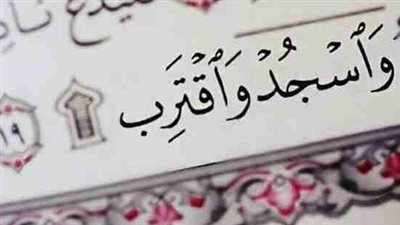 وَٱسۡجُدۡ وَٱقۡتَرِب ۩ ١٩